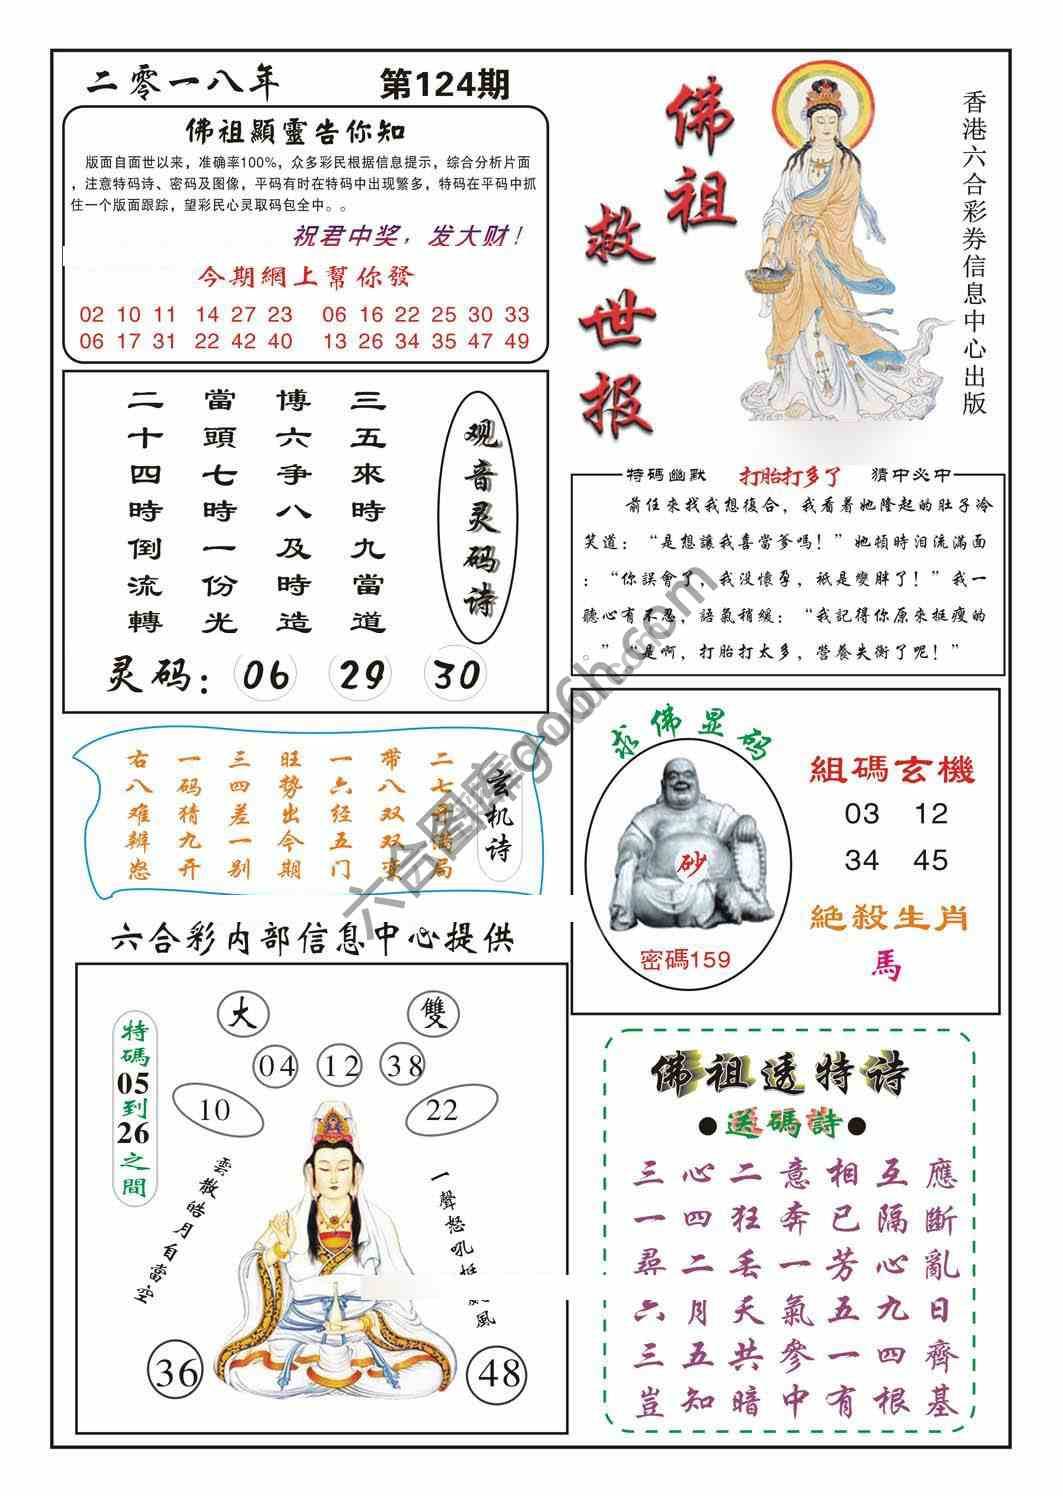 二零一八年 第124期
佛祖顯靈告你知
版面自面世以来，准确率100%，众多彩民根据信息提示，综合分析片面
，注意特码诗、密码及图像，平码有时在特码中出现繁多，特码在平码中抓
住一个版面跟踪，望彩民心灵取码包全中。。
祝君中奖，发大财！
今期網上幫你發
02 10 11 14 27 23 06 16 22 25 30 33
06 17 31 22 42 40 13 26 34 35 47 49
佛祖救世报
香港六合彩券信息中心出版
观音灵码诗
三五來時九當道
博六爭八及時造
當頭七時一份光
二十四時倒流轉
灵码：06 29 30
特碼幽默 打胎打多了 猜中必中
前任來找我想復合，我看着她隆起的肚子冷
笑道：“是想讓我喜當爹嗎！”她頓時泪流滿面
：“你誤會了，我没懷孕，衹是變胖了！”我一
聽心有不忍，語氣稍緩：“我記得你原來挺瘦的
。”“是啊，打胎打太多，營養失衡了呢！”
玄机诗
二七开满局
带八双双变
一六经五门
旺勢出今期
三四差一别
一码猜九开
右八难辨忽
求佛显码
砂
密碼159
組碼玄機
03 12
34 45
絕殺生肖
馬
六合彩内部信息中心提供
特碼05到26之間
大 雙
04 12 38
10 22
雲散皓月自當空
一聲怒吼
風
36 48
佛祖透特诗
●送碼詩●
三心二意相互應
一四狂奔已隔斷
尋二丢一芳心亂
六月天氣五九日
三五共參一四齊
豈知暗中有根基
六合图库go6h.com